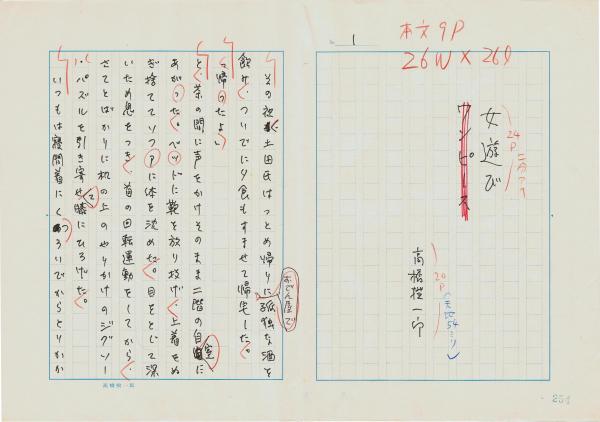 1
本文9P
26W×26l
女遊び
24P
ワンピース
高橋揆一郎
20P
その夜、土田氏はつとめ帰りに孤独な酒を
おでん屋で
飲み、ついでに夕食もすませて帰宅した。
「帰ったよ」
と、茶の間に声をかけそのまま二階の自室に
あがった。ベッドに鞄を放り投げ、上着をぬ
ぎ捨ててソファに体を沈めた。目をとじて深
いため息をつき、首の回転運動をしてから、
さてとばかりに机の上のやりかけのジグソー
・パズルを引き寄せて膝にひろげた。
いつもは寝間着にくつろいでからとりかか
高橋揆一郎
254